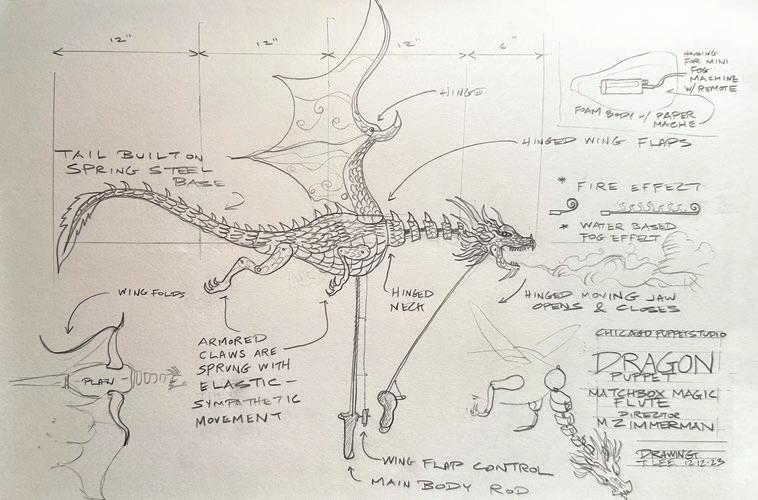 12"
12"
12"
6"
HOUSING
FOR MINI
FOG
MACHINE
W/ REMOTE
FOAM BODY w/ PAPER
MACHE
HINGE
HINGED WING FLAPS
TAIL BUILT ON
SPRING STEEL
BASE
* FIRE EFFECT
* WATER BASED
FOG EFFECT
WING FOLDS
HINGED
NECK
HINGED MOVING JAW
OPENS & CLOSES
ARMORED
CLAWS ARE
SPRUNG WITH
ELASTIC -
SYMPATHETIC
MOVEMENT
PLAN
CHICAGO PUPPET STUDIO
DRAGON
PUPPET
MATCHBOX MAGIC
FLUTE
DIRECTOR
M ZIMMERMAN
WING FLAP CONTROL
MAIN BODY ROD
DRAWING
T LEE 12-12-23